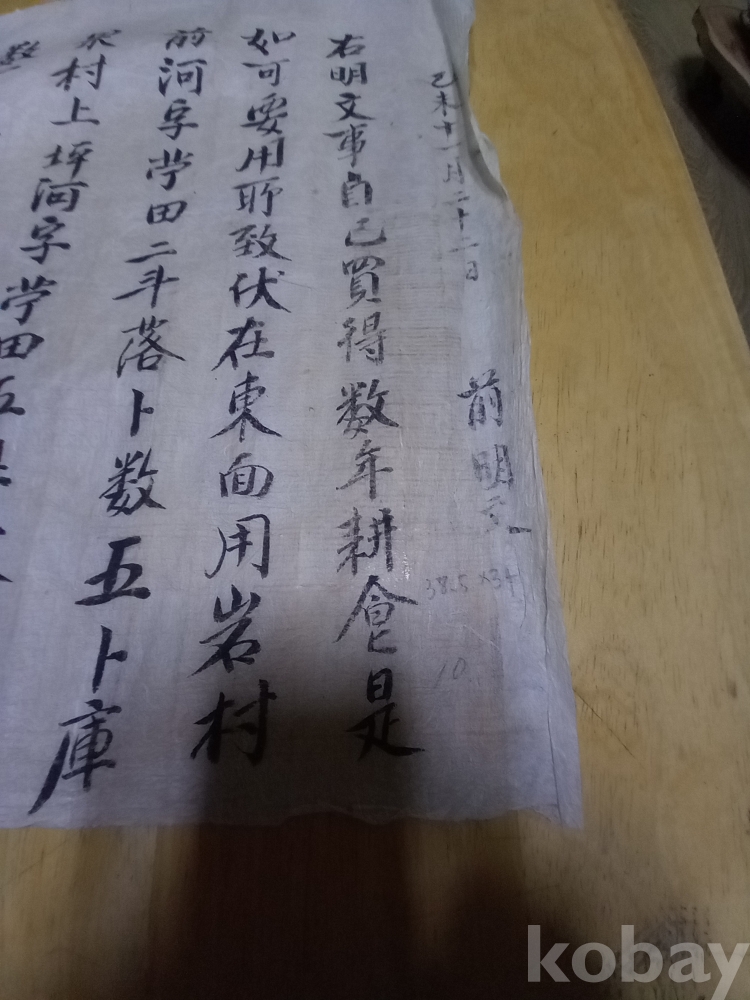 己未十一月二十二日 前明文
38.5 × 34
10
右明文事自己買得数年耕食是
如可要用所致伏在東面用岩村
前河字畓田二斗落卜数五卜庫
村上坪河字畓田五
kobay